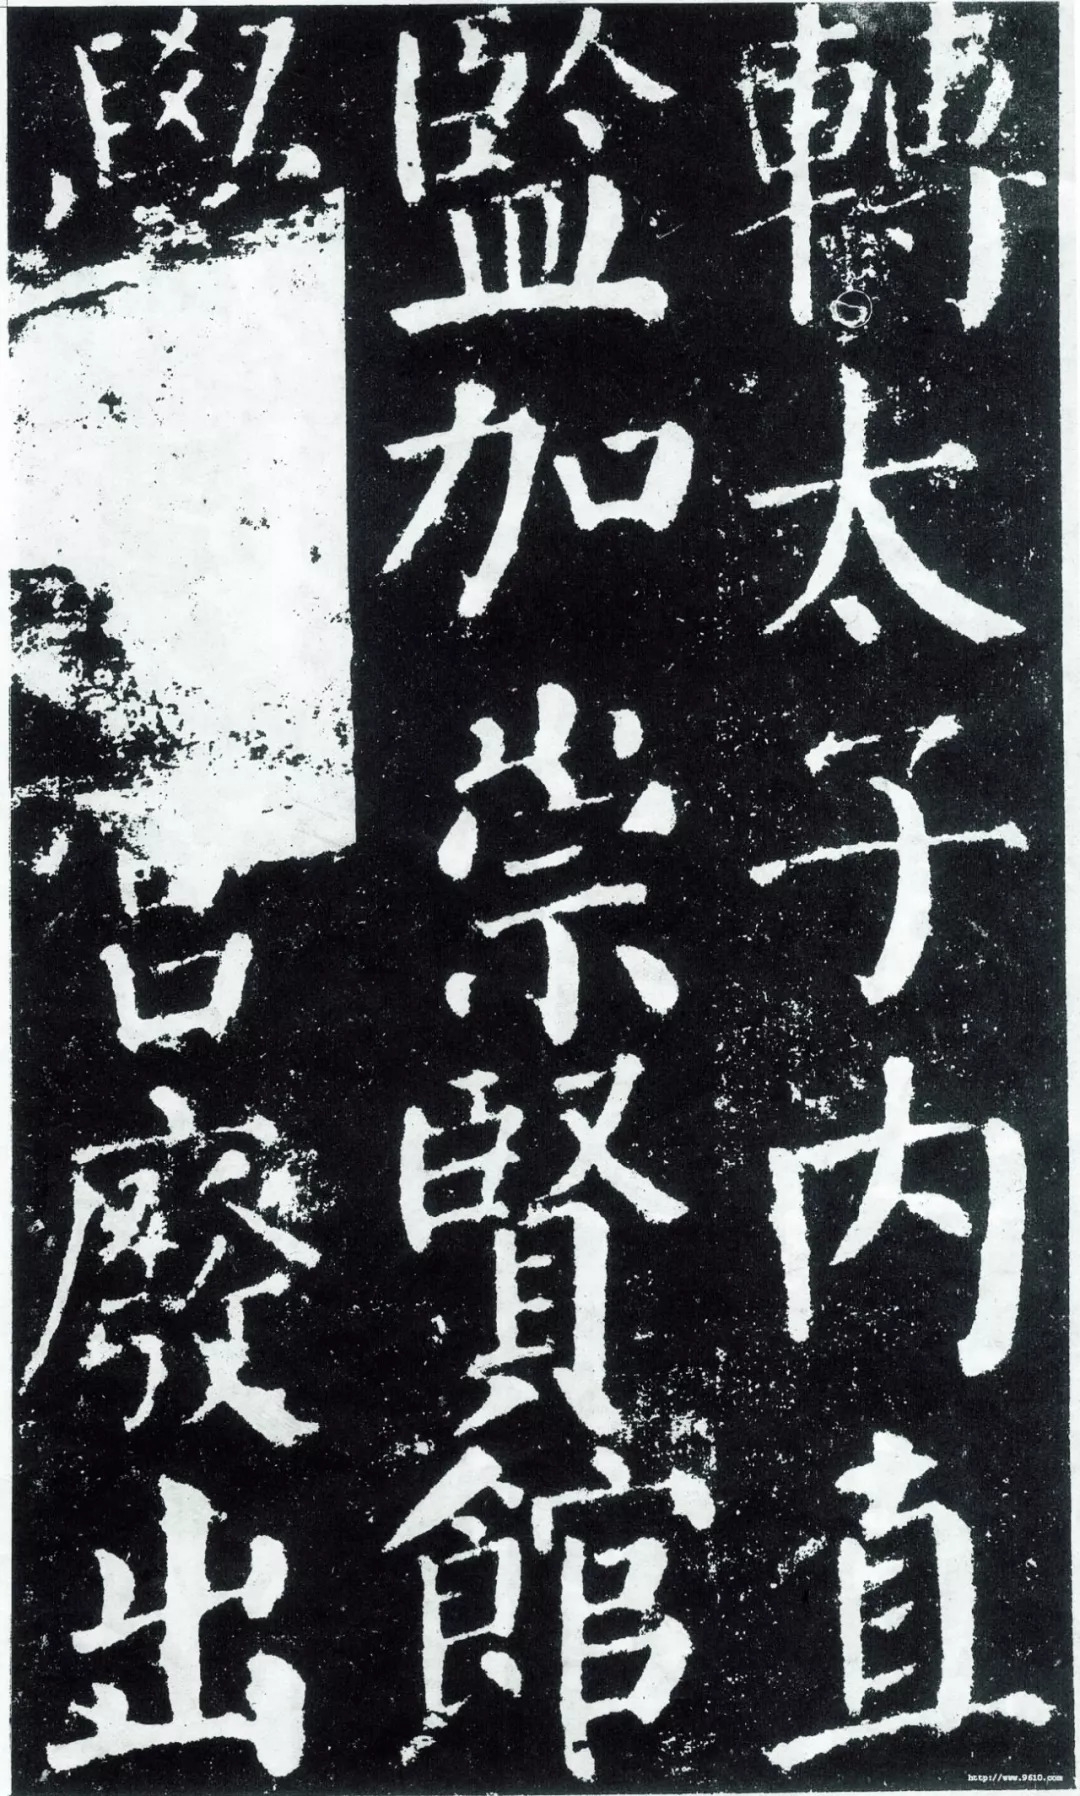 轉太子内直
監加崇賢館
學宮廢出
http://www.9610.com